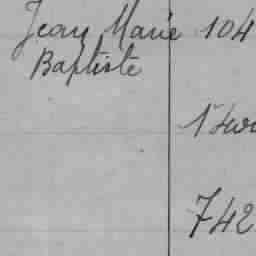 Jean Marie 104
Baptiste
742